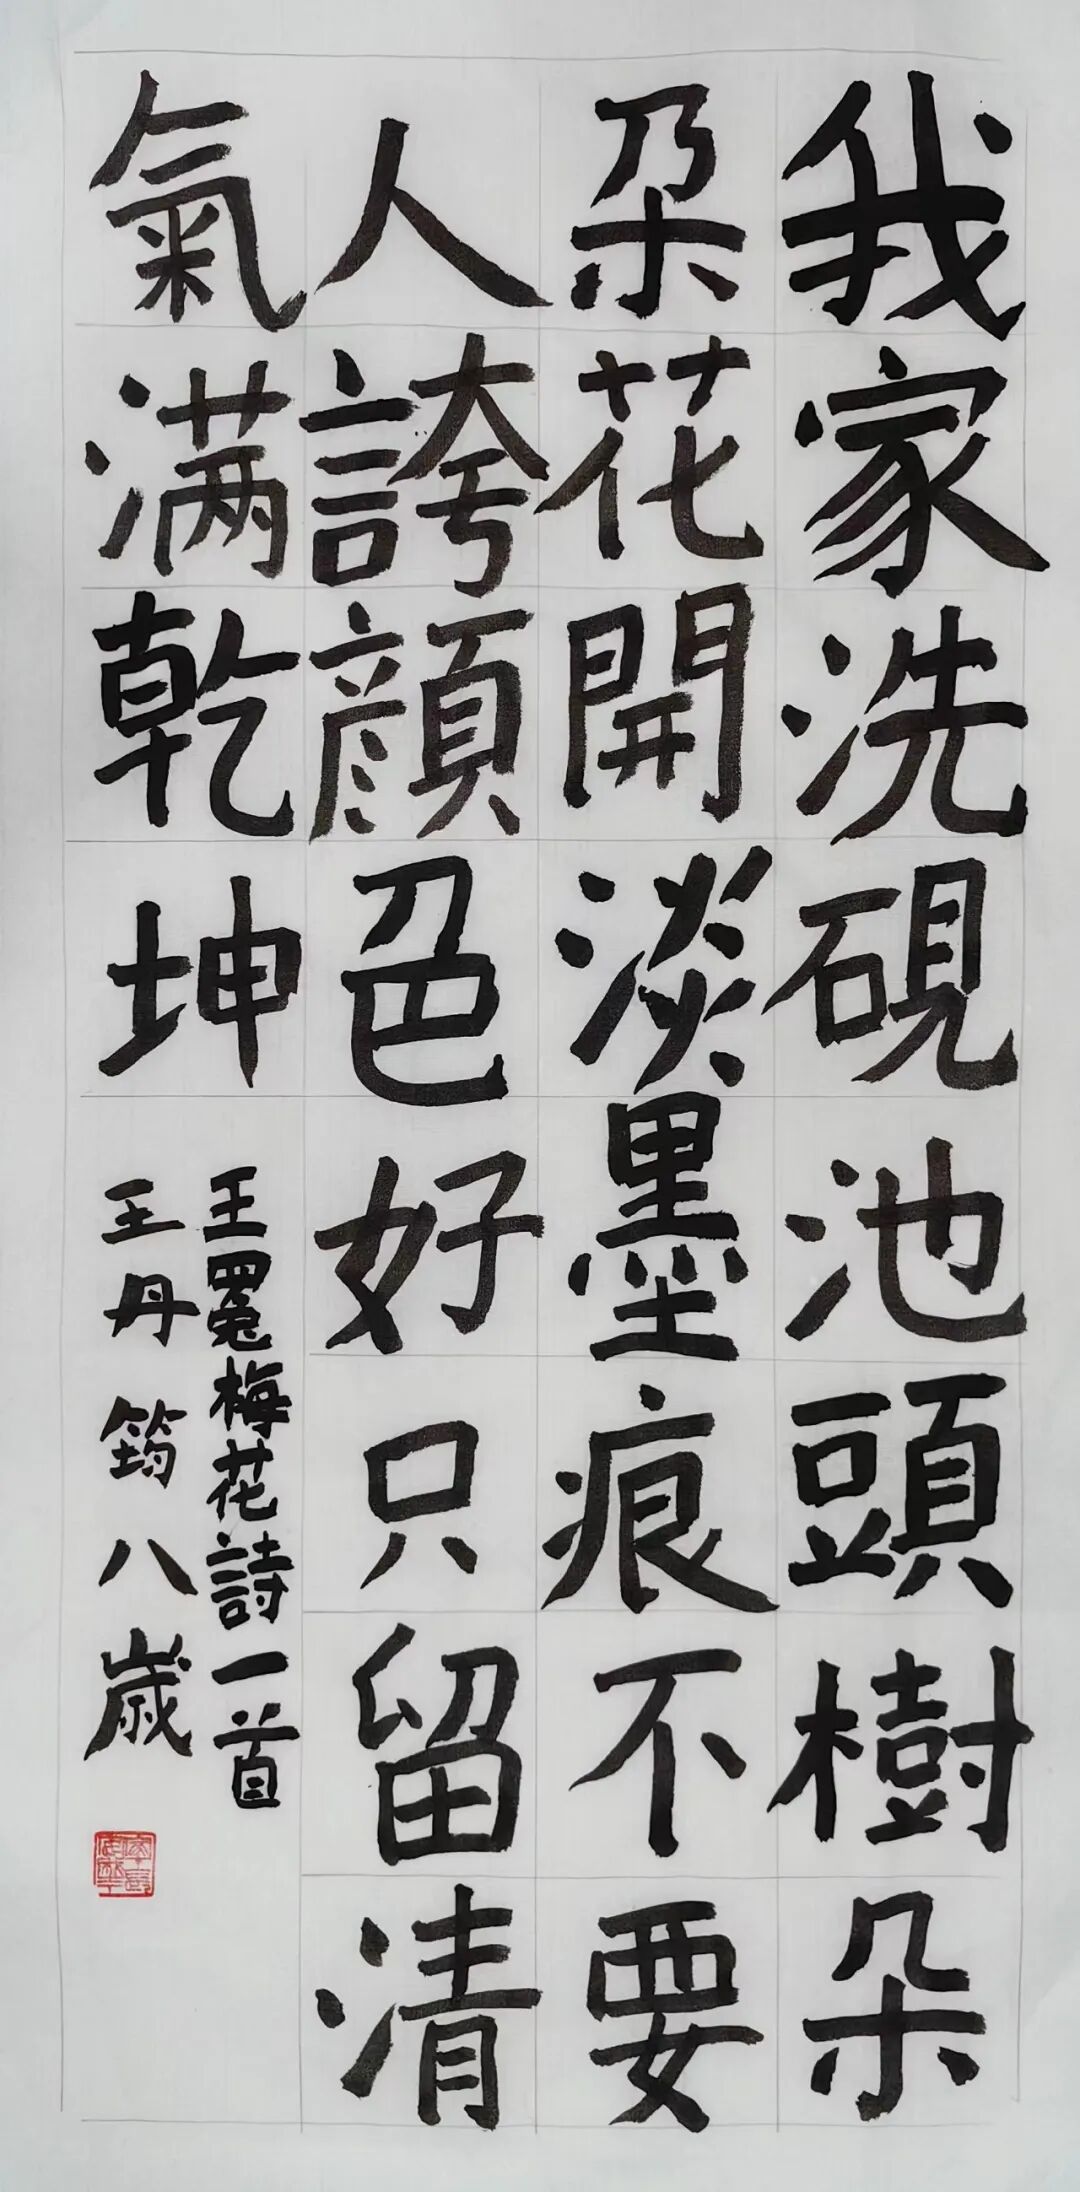 我家洗硯池頭樹朵
朵花開淡墨痕不要
人誇顔色好只留清
氣满乾坤
王冕梅花詩一首
王丹筠八歲